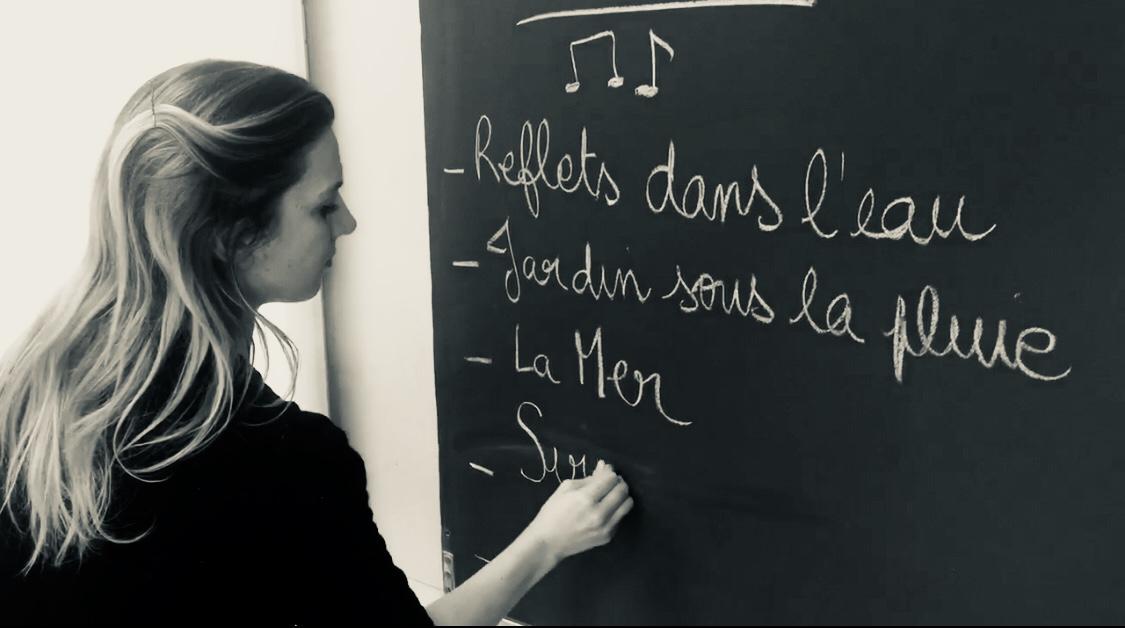 - Reflets dans l'eau
- Jardin sous la pluie
- La Mer
- Syr